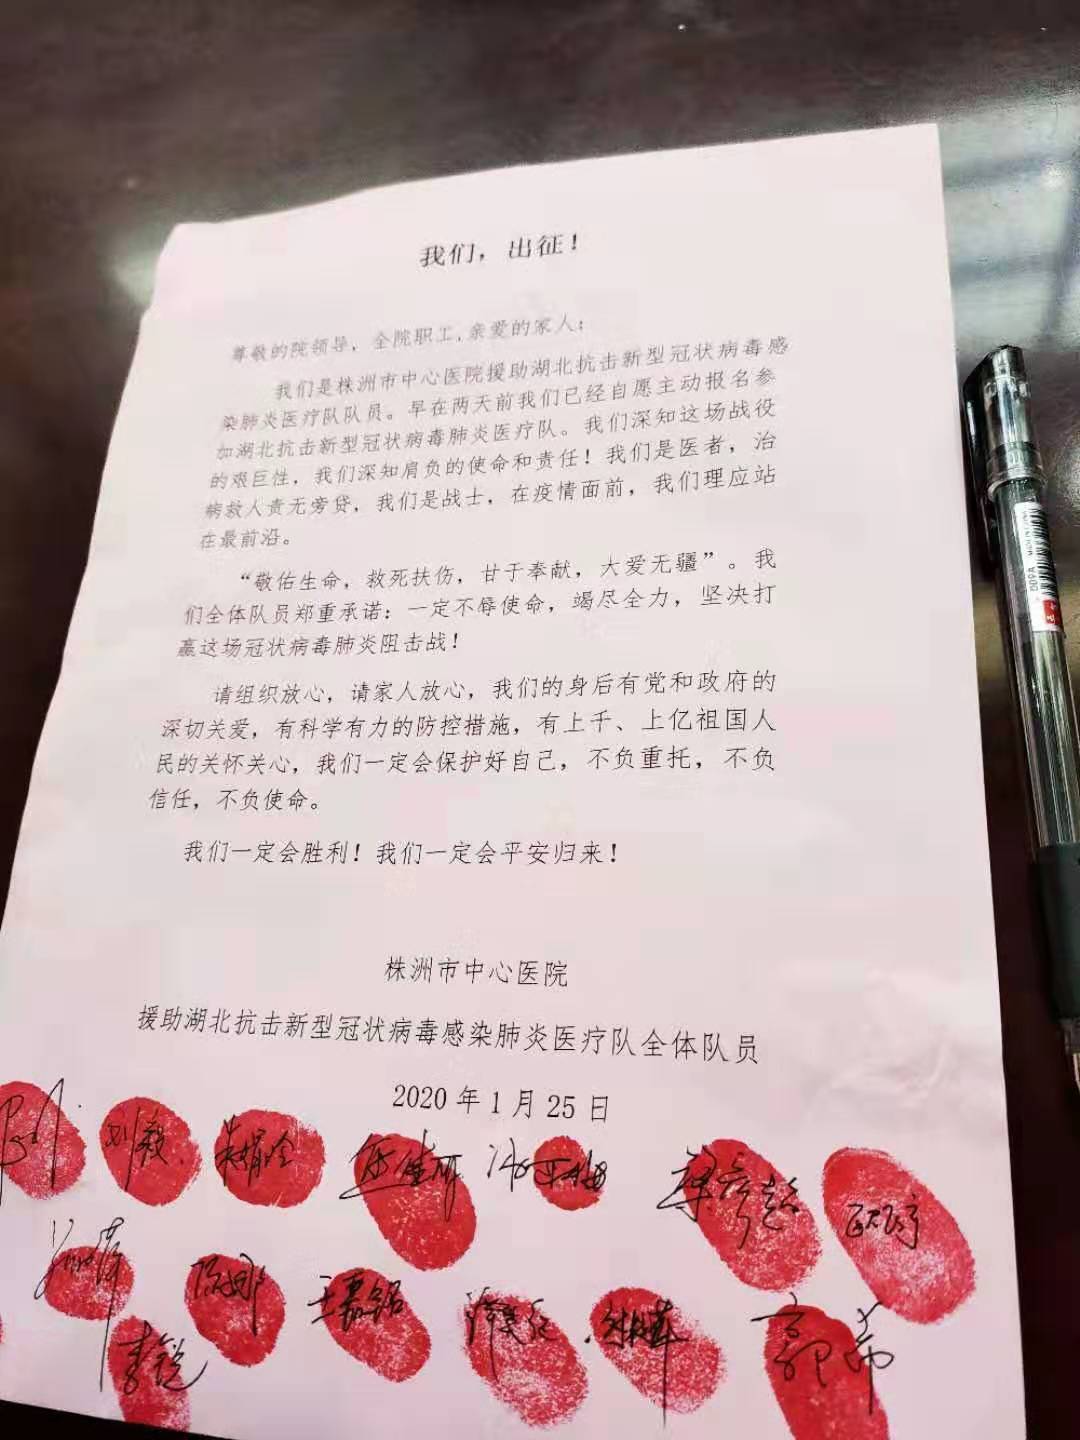 我们，出征！
尊敬的院领导，全院职工，亲爱的家人：
我们是株洲市中心医院援助湖北抗击新型冠状病毒感
染肺炎医疗队队员。早在两天前我们已经自愿主动报名参
加湖北抗击新型冠状病毒肺炎医疗队。我们深知这场战役
的艰巨性，我们深知肩负的使命和责任！我们是医者，治
病救人责无旁贷，我们是战士，在疫情面前，我们理应站
在最前沿。
“敬佑生命，救死扶伤，甘于奉献，大爱无疆”。我
们全体队员郑重承诺：一定不辱使命，竭尽全力，坚决打
赢这场冠状病毒肺炎阻击战！
请组织放心，请家人放心，我们的身后有党和政府的
深切关爱，有科学有力的防控措施，有上千、上亿祖国人
民的关怀关心，我们一定会保护好自己，不负重托，不负
信任，不负使命。
我们一定会胜利！我们一定会平安归来！
株洲市中心医院
援助湖北抗击新型冠状病毒感染肺炎医疗队全体队员
2020年1月25日
刘毅
陈娜
李锐